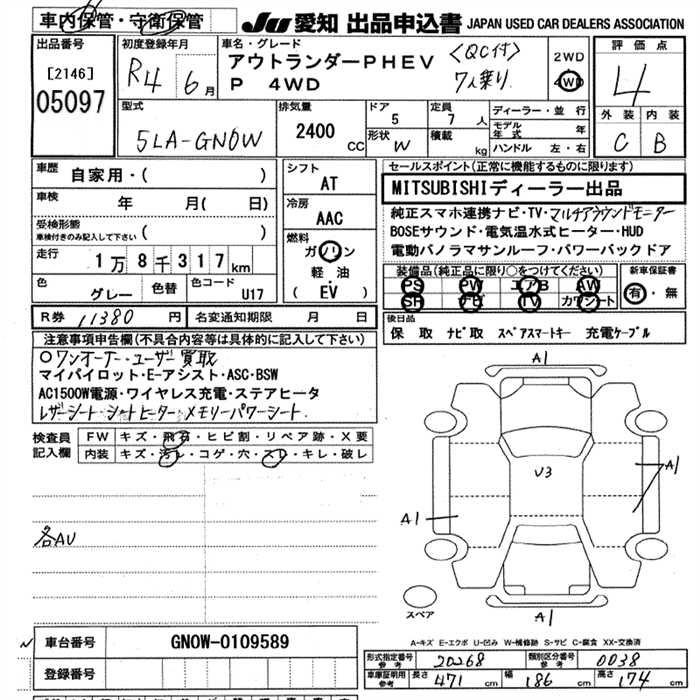 車内保管・守衛保管
JU 愛知 出品申込書 JAPAN USED CAR DEALERS ASSOCIATION
出品番号
[2146]
05097
初度登録年月
R4 6月
車名・グレード
アウトランダーPHEV <QC付>
P 4WD 7人乗り.
2WD
4WD
評価点
4
外装 内装
C B
型式
5LA-GN0W
排気量
2400 CC
ドア
5
形状
W
定員
7 人
積載
kg
ディーラー・並行
モデル年式 年
ハンドル 左・右
車歴
自家用・( )
車検
年 月( 日)
受検形態
車検付きのみ記入して下さい ( )
走行
1万8千317km
色
グレー
色替
色コード
U17
シフト
AT
冷房
AAC
燃料
ガソリン
軽油
( EV )
セールスポイント(正常に機能するものに限ります)
MITSUBISHIディーラー出品
純正スマホ連携ナビ・TV・マルチアラウンドモニター
BOSEサウンド・電気温水式ヒーター・HUD
電動パノラマサンルーフ・パワーバックドア
装備品(純正品に限り○をつけてください)
PS PW エアB AW
SR ナビ TV カワシート
新車保証書
有・無
R券 11380 円
名変通知期限 月 日
後日品
保 取 ナビ取 スペアスマートキー 充電ケーブル
注意事項申告欄(不具合内容等は具体的に記入して下さい)
○ワンオーナー・ユーザー買取
マイパイロット・E-アシスト・ASC・BSW
AC1500W電源・ワイヤレス充電・ステアヒータ
レザーシート・シートヒーター・メモリーパワーシート.
検査員記入欄
FW キズ・飛石・ヒビ割・リペア跡・X要
内装 キズ・汚レ・コゲ・穴・スレ・キレ・破レ
各AU
A1
U3
A1
A1
A1
スペア
A-キズ E-エクボ U-凹み W-補修跡 S-サビ C-腐食 XX-交換済
車台番号
GN0W-0109589
登録番号
形式指定番号参考 20268
類別区分番号参考 0038
車庫証明用参考 長さ 471 幅 186 高さ 174